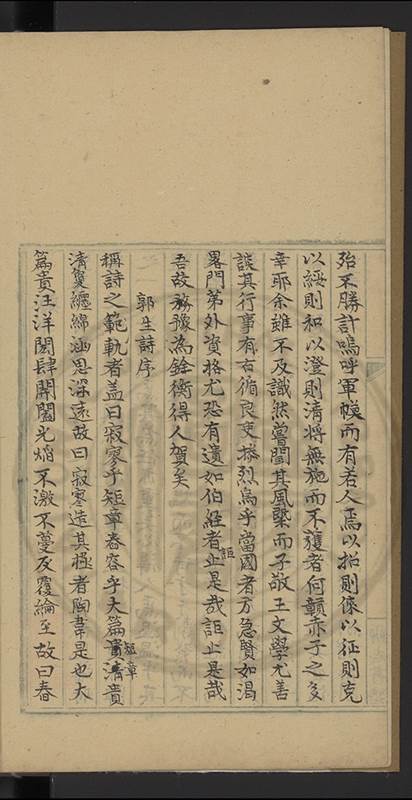 殆不勝計嗚呼軍幙而有若人焉以招則倈以征則克
以綏則和以澄則清將無施而不獲者何赤子之多
幸耶余雖不及識然嘗聞其風槩而子敬王文學尤善
談其行事有古循良吏烈烏乎當國者方急賢如渴
畧門第外資格尤恐有遺如伯經者詎止是哉詎止是哉
吾故豫為銓衡得人賀矣
郭生詩序
稱詩之範軌者盖曰寂寥乎短章舂容乎大篇短章清貴
清夐纏綿涵思深遠故曰寂寥造其極者陶韋是也大
篇貴汪洋閎肆開闔光焰不激不蔓反覆綸至故曰舂